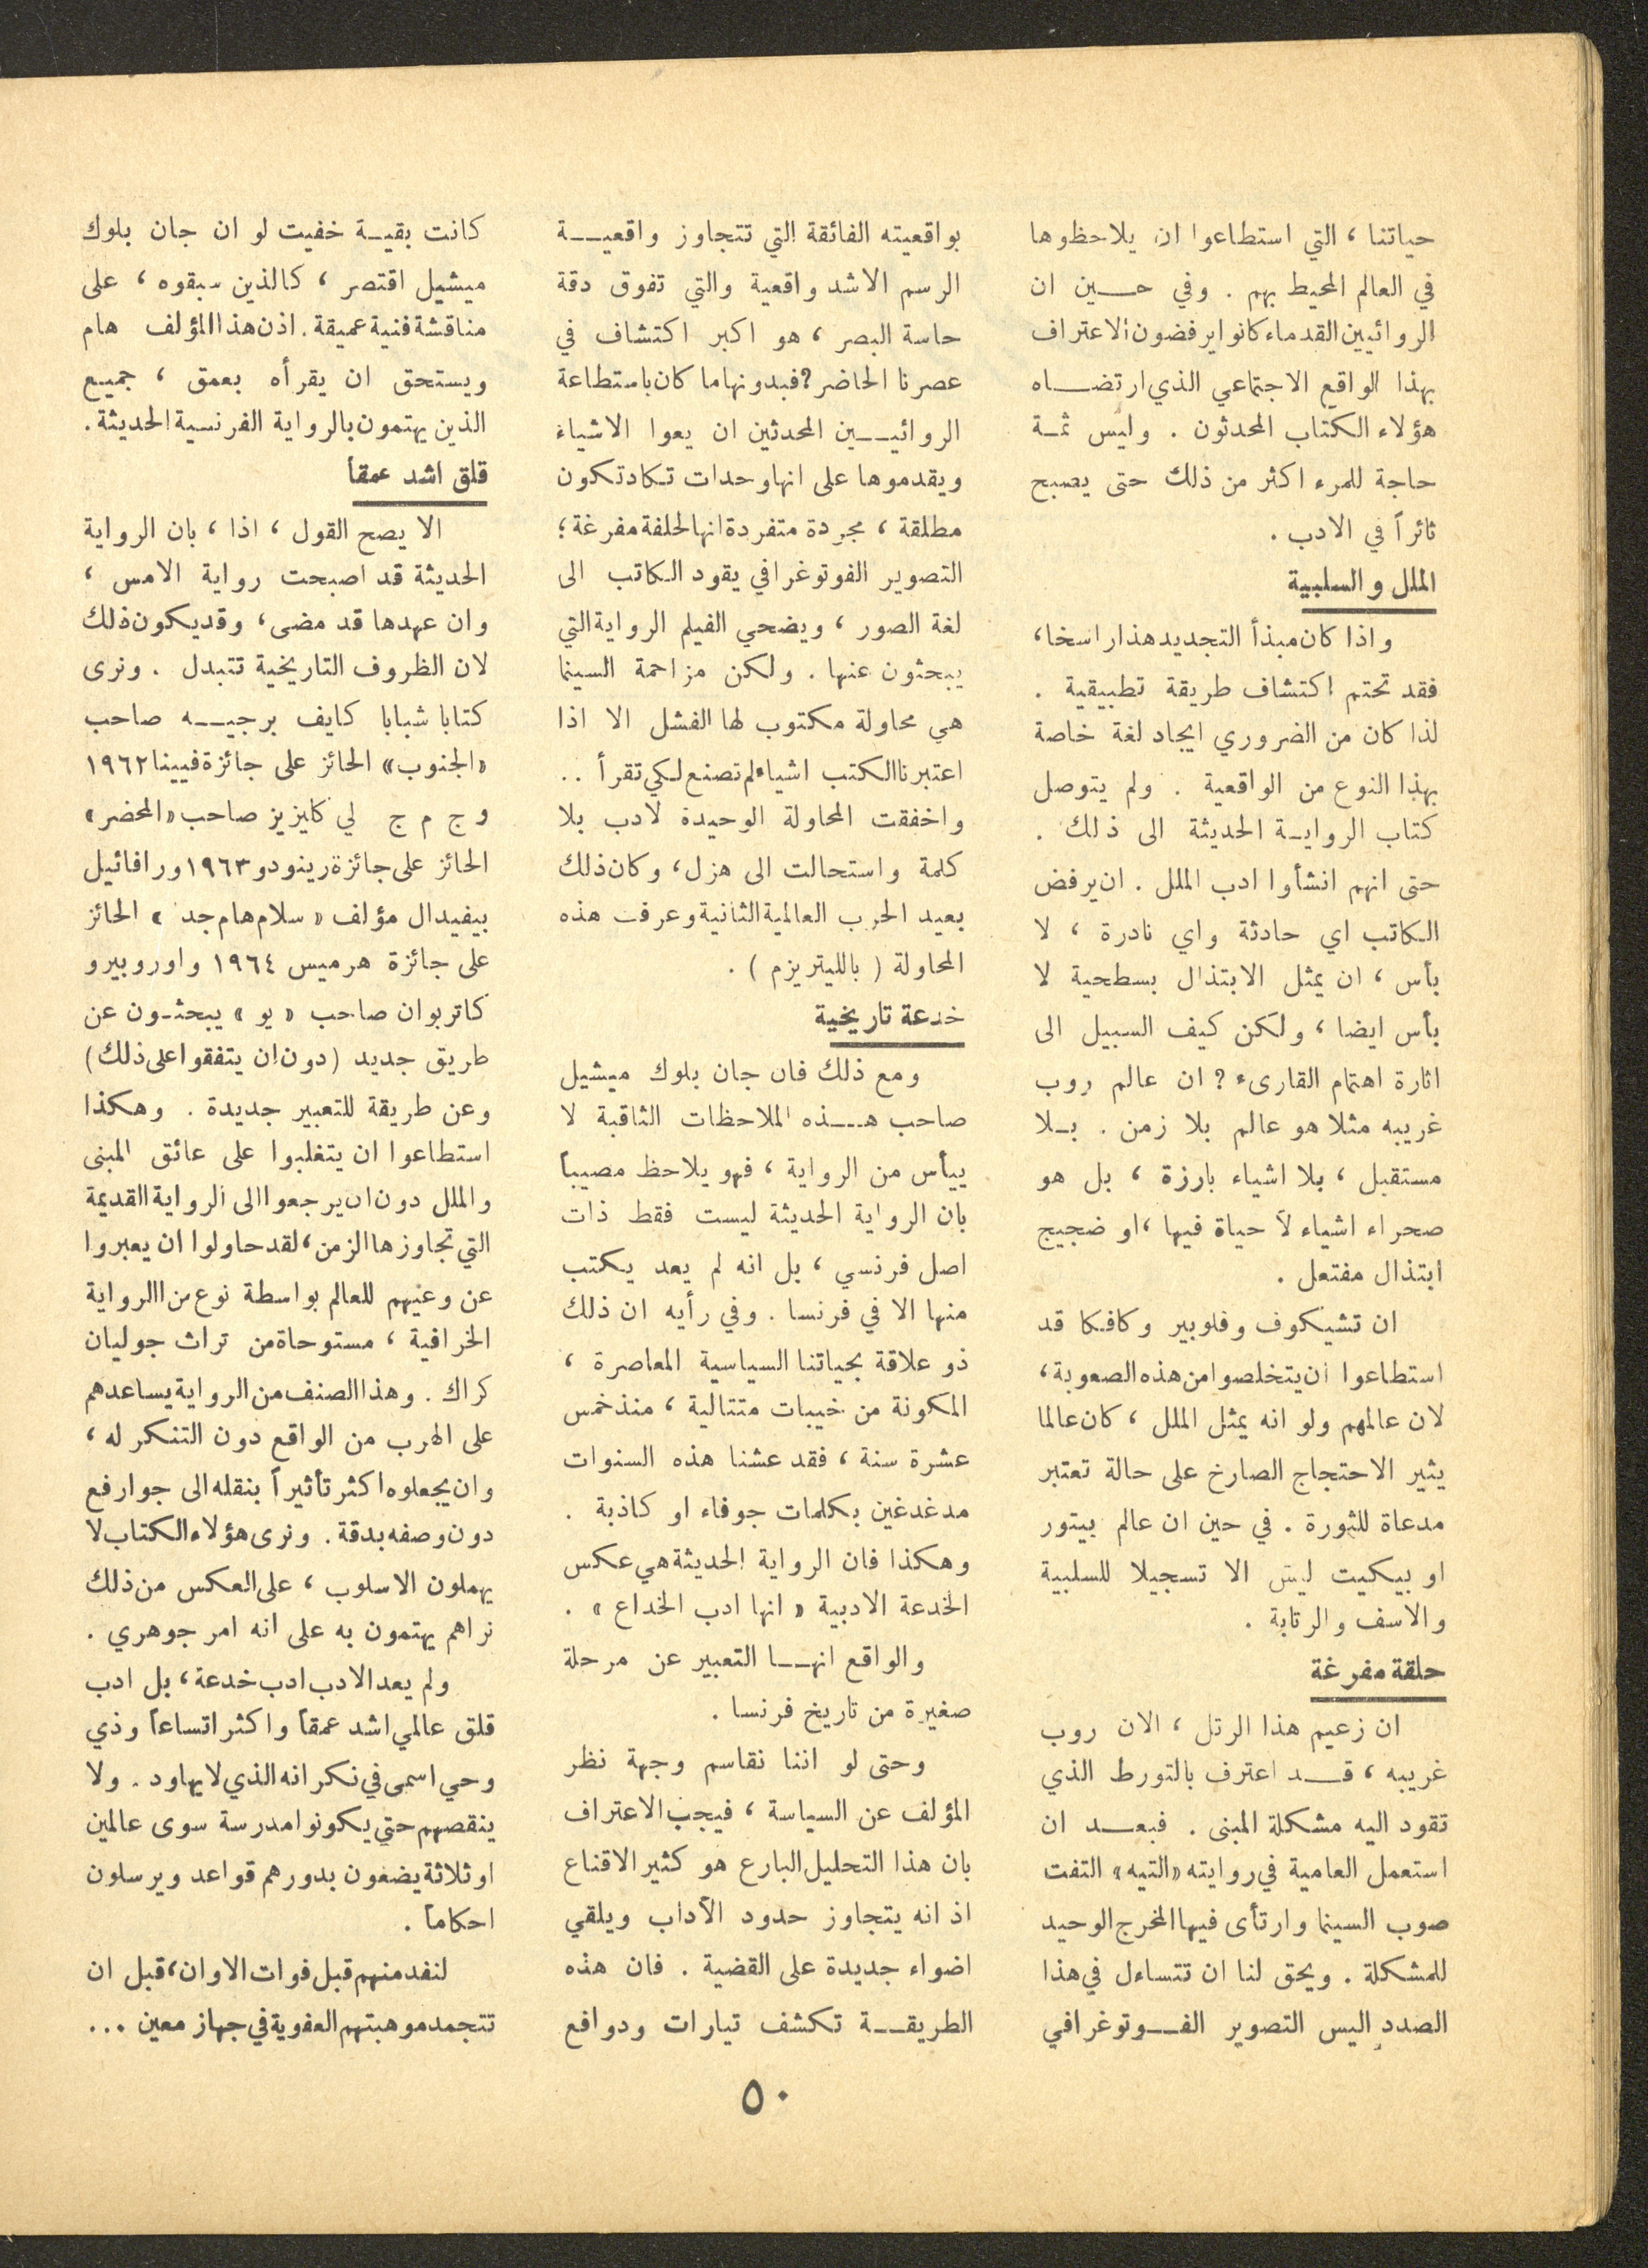 حياتنا ، التي استطاعوا ان يلاحظوها
في العالم المحيط بهم . وفي حين ان
الروائيين القدماء كانوا يرفضون الاعتراف
بهذا الواقع الاجتماعي الذي ارتضاه
هؤلاء الكتاب المحدثون . وليس ثمة
حاجة للمرء اكثر من ذلك حتى يصبح
ثائراً في الادب .
الملل والسلبية
واذا كان مبدأ التجديد هذا راسخا ،
فقد تحتم اكتشاف طريقة تطبيقية .
لذا كان من الضروري ايجاد لغة خاصة
بهذا النوع من الواقعية . ولم يتوصل
كتاب الرواية الحديثة الى ذلك .
حتى انهم انشأوا ادب الملل . ان يرفض
الكاتب اي حادثة واي نادرة ، لا
بأس ، ان يمثل الابتذال بسطحية لا
بأس ايضا ، ولكن كيف السبيل الى
اثارة اهتمام القارىء ? ان عالم روب
غرييه مثلا هو عالم بلا زمن . بلا
مستقبل ، بلا اشياء بارزة ، بل هو
صحراء اشياء لا حياة فيها ، او ضجيج
ابتذال مفتعل .
ان تشيكوف وفلوبير وكافكا قد
استطاعوا ان يتخلصوا من هذه الصعوبة ،
لان عالمهم ولو انه يمثل الملل ، كان عالما
يثير الاحتجاج الصارخ على حالة تعتبر
مدعاة للثورة . في حين ان عالم بيتور
او بيكيت ليس الا تسجيلا للسلبية
والاسف والرتابة .
حلقة مفرغة
ان زعيم هذا الرتل ، الان روب
غرييه ، قد اعترف بالتورط الذي
تقود اليه مشكلة المبنى . فبعد ان
استعمل العامية في روايته «التيه» التفت
صوب السينما وارتأى فيها المخرج الوحيد
للمشكلة . ويحق لنا ان تتساءل في هذا
الصدد اليس التصوير الفوتوغرافي
بواقعيته الفائقة التي تتجاوز واقعية
الرسم الاشد واقعية والتي تفوق دقة
حاسة البصر ، هو اكبر اكتشاف في
عصرنا الحاضر ? فبدونها ما كان باستطاعة
الروائيين المحدثين ان يعوا الاشياء
ويقدموها على انها وحدات تكاد تكون
مطلقة ، مجردة متفردة انها لحلفة مفرغة ؛
التصوير الفوتوغرافي يقود الكاتب الى
لغة الصور ، ويضحي الفيلم الرواية التي
يبحثون عنها . ولكن مزاحمة السينما
هي محاولة مكتوب لها الفشل الا اذا
اعتبرنا الكتب اشياء لم تصنع لكي تقرأ ..
واخفقت المحاولة الوحيدة لادب بلا
كلمة واستحالت الى هزل ، وكان ذلك
بعيد الحرب العالمية الثانية وعرفت هذه
المحاولة ( بالليتريزم ) .
خدعة تاريخية
ومع ذلك فان جان بلوك ميشيل
صاحب هذه الملاحظات الثاقبة لا
ييأس من الرواية ، فهو يلاحظ مصيباً
بان الرواية الحديثة ليست فقط ذات
اصل فرنسي ، بل انه لم يعد يكتب
منها الا في فرنسا . وفي رأيه ان ذلك
ذو علاقة بحياتنا السياسية المعاصرة ،
المكونة من خيبات متتالية ، منذ خمس
عشرة سنة ، فقد عشنا هذه السنوات
مدغدغين بكلمات جوفاء او كاذبة .
وهكذا فان الرواية الحديثة هي عكس
الخدعة الادبية « انها ادب الخداع » .
والواقع انها التعبير عن مرحلة
صغيرة من تاريخ فرنسا .
وحتى لو اننا نقاسم وجهة نظر
المؤلف عن السياسة ، فيجب الاعتراف
بان هذا التحليل البارع هو كثير الاقناع
اذ انه يتجاوز حدود الآداب ويلقي
اضواء جديدة على القضية . فان هذه
الطريقة تكشف تيارات ودوافع
كانت بقية خفيت لو ان جان بلوك
ميشيل اقتصر ، كالذين سبقوه ، على
مناقشة فنية عميقة . اذن هذا المؤلف هام
ويستحق ان يقرأه بعمق ، جميع
الذين يهتمون بالرواية الفرنسية الحديثة .
قلق اشد عمقاً
الا يصح القول ، اذا ، بان الرواية
الحديثة قد اصبحت رواية الامس ،
وان عهدها قد مضى ، وقد يكون ذلك
لان الظروف التاريخية تتبدل . ونرى
كتابا شبابا كايف برجيه صاحب
«الجنوب» الحائز على جائزة فيينا ١٩٦٢
و ج م ج لي كايزيز صاحب «المحضر»
الحائز على جائزة رينودو ١٩٦٣ ورافائيل
بيفيدال مؤلف « سلام هام جد » الحائز
على جائزة هرميس ١٩٦٤ واوروبيرو
كاتربوان صاحب « يو » يبحثون عن
طريق جديد ( دون ان يتفقوا على ذلك )
وعن طريقة للتعبير جديدة . وهكذا
استطاعوا ان يتغلبوا على عائق المبنى
والملل دون ان يرجعوا الى الرواية القديمة
التي تجاوزها الزمن ، لقد حاولوا ان يعبروا
عن وعيهم للعالم بواسطة نوع من الرواية
الخرافية ، مستوحاة من تراث جوليان
كراك . وهذا الصنف من الرواية يساعدهم
على الهرب من الواقع دون التنكر له ،
وان يجعلوه اكثر تأثيراً بنقله الى جو ارفع
دون وصفه بدقة . ونرى هؤلاء الكتاب لا
يهملون الاسلوب ، على العكس من ذلك
نراهم يهتمون به على انه امر جوهري .
ولم يعد الادب ادب خدعة ، بل ادب
قلق عالمي اشد عمقاً واكثر اتساعاً وذي
وحي اسمى في نكرانه الذي لا يهاود . ولا
ينقصهم حتى يكونوا مدرسة سوى عالمين
او ثلاثة يضعون بدورهم قواعد ويرسلون
احكاماً .
لنفد منهم قبل فوات الاوان ، قبل ان
تتجمد موهبتهم العفوية في جهاز معين ...
٥٠